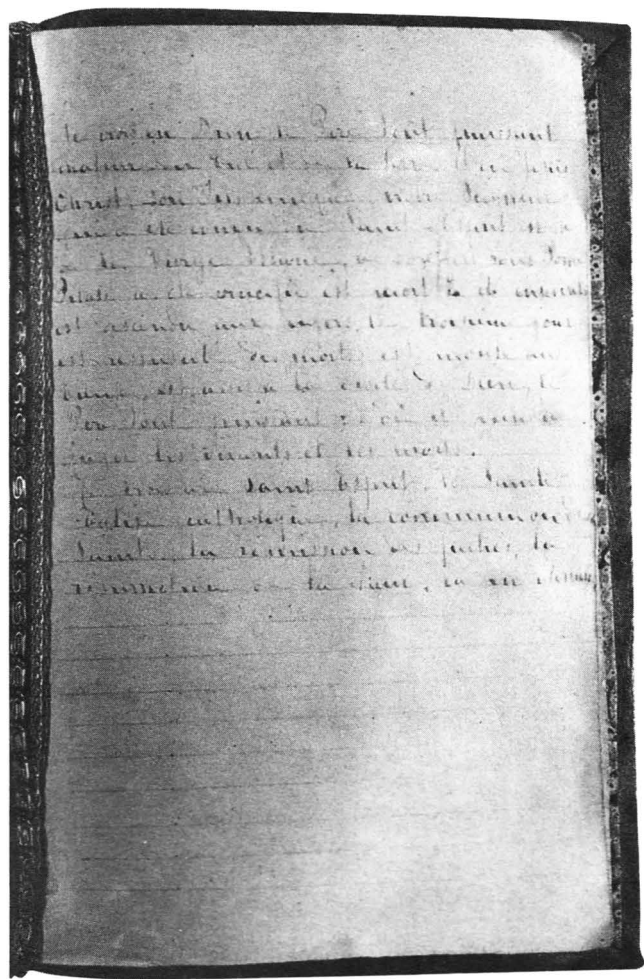 Je crois en Dieu le Père tout puissant
créateur du Ciel et de la terre et en Jésus
Christ son fils unique notre Seigneur
qui a été conçu du Saint Esprit est né
de la Vierge Marie, a souffert sous Ponce
Pilate a été crucifié est mort et a été enseveli
est descendu aux enfers, le troisième jour
est ressuscité des morts est monté au
cieux, est assis à la droite de Dieu, le
Père tout puissant d'où il viendra
juger les vivants et les morts.
Je crois au Saint Esprit, la Sainte
Église catholique, la communion des
Saints, la rémission des péchés, la
résurrection de la chair, la vie éternelle